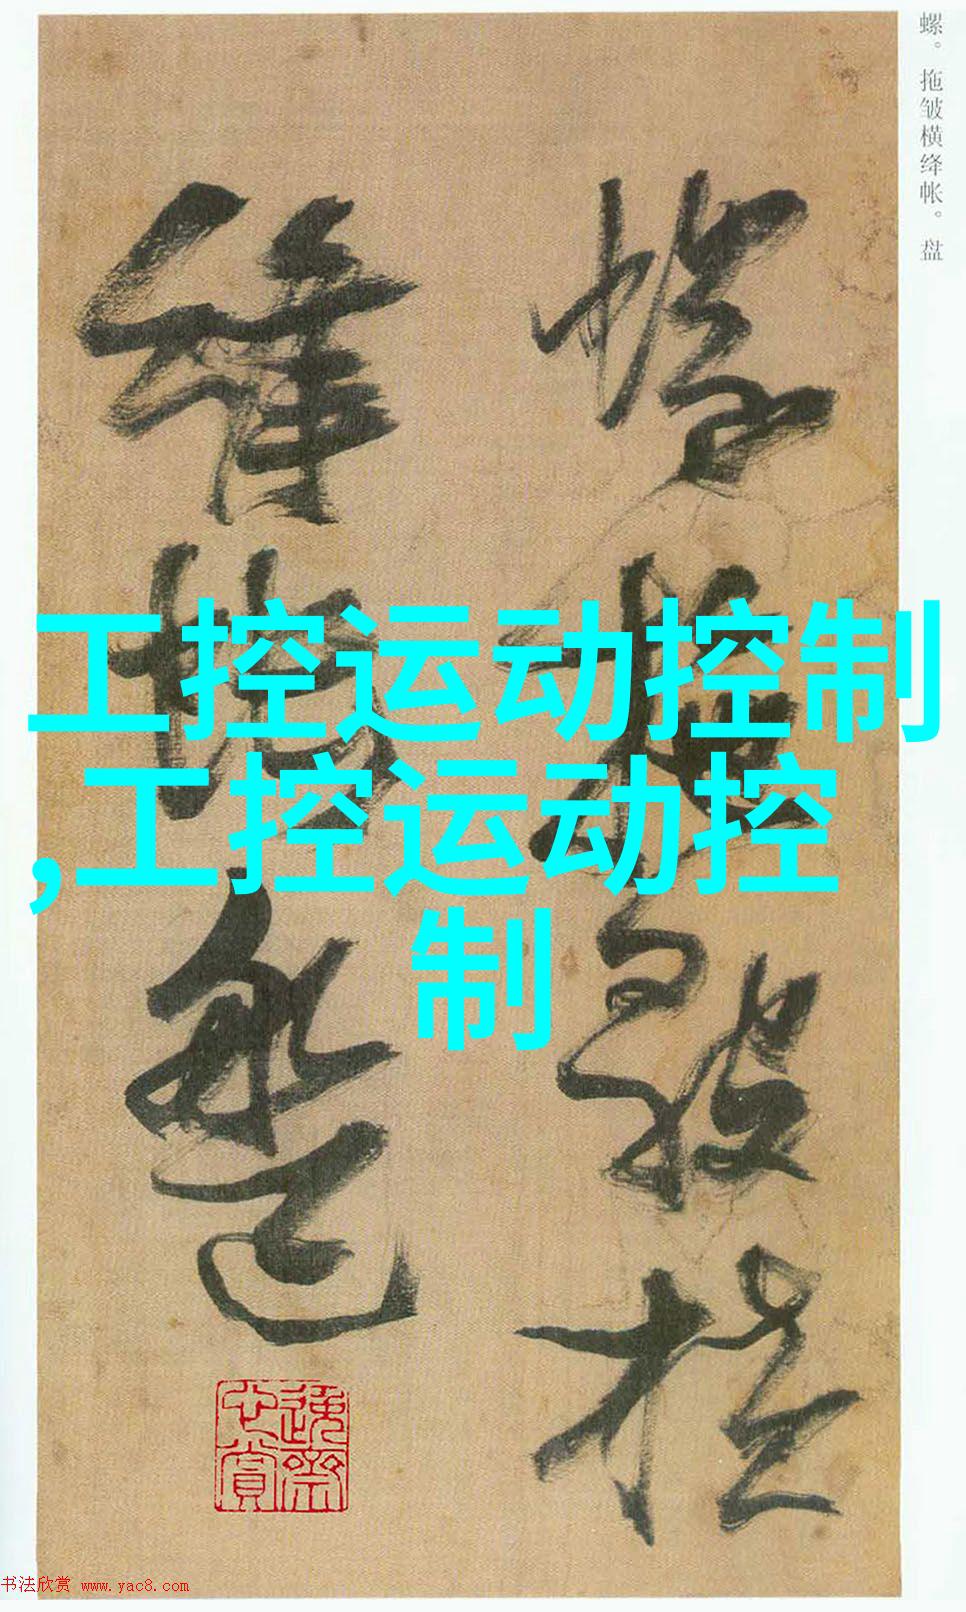 螺。拖皱横绛帐。盘
螺拖皱横
绛帐盘
工控运动控制
,工控运动控
制
书法欣赏 www.yac8.com